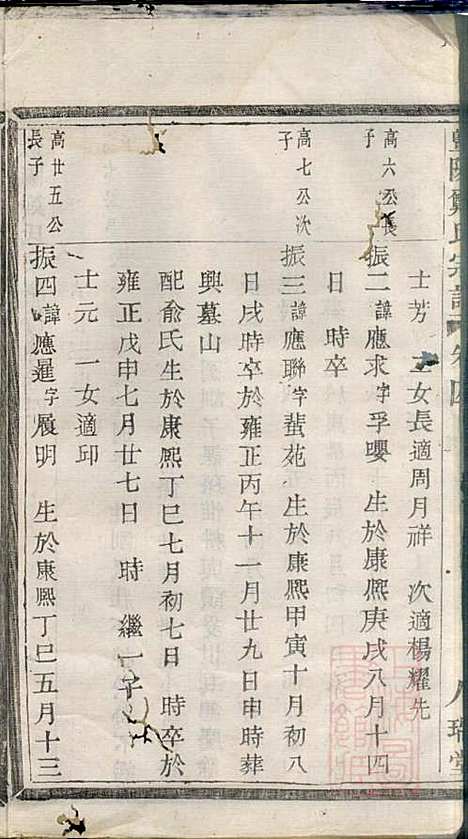 暨陽鄭氏宗譜 卷四
士芳 二女長適周月祥 次適楊耀先
高六公長子
振二諱應求字孚嚶 生於康熙庚戌八月十四
日 時卒
高七公次子
振三諱應聯字蜚苑 生於康熙甲寅十月初八
日戌時卒於雍正丙午十一月廿九日申時葬
興墓山
配俞氏生於康熙丁巳七月初七日 時卒於
雍正戊申七月廿七日 時 繼一子
士元 一女適印
高廿五公長子
振四諱應暹字展明 生於康熙丁巳五月十三